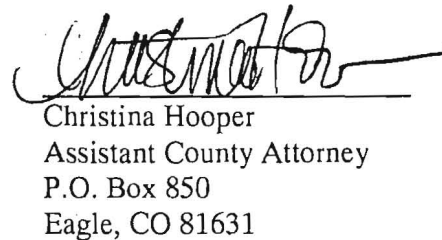 Christina Hooper
Assistant County Attorney
P.O. Box 850
Eagle, CO 81631